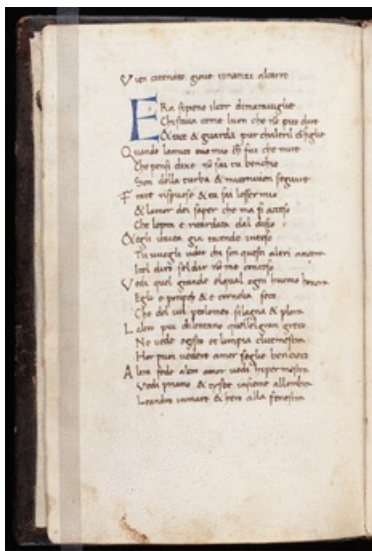 Vien catenato gioue innanzi alcarro
ERa sipieno ilcor dimarauiglie
Chistaua come luon che nō puo dire
& tace & guarda pur chaltril consiglie
Quando lamico mio che fai che mire
Che pensi dixe nō sai tu benchio
Son della turba & miconuien seguire
Frate rispuose & tu sai lesser mio
& lamor del saper che ma si acceso
Che lopra e ritardata dal disio
& egli tauea gia tacendo inteso
Tu uuogli udir chi son questi altri ancora
Iotel diro sel dir nō me conteso
Vedi quel grande elqual ogni huomo honora
Egli e pompeo & e cornelia seco
Che del uil ptolomeo silagna & plora
Laltro piu dilontano quellel gran greco
Ne uede egysto et lempia clitemestra
Hor puoi uedere amor segliе bencieco
Altra fede altro amor uedi hipermestra
Vedi priamo & tysbe insieme allombra
Leandro inmare & hero alla fenestra